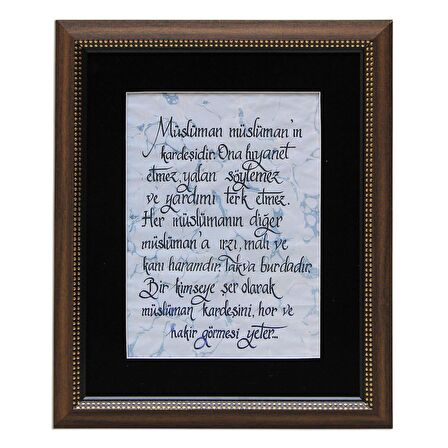 Müslüman müslüman'ın
kardeşidir. Ona hıyanet
etmez, yalan söylemez
ve yardımı terk etmez.
Her müslümanın diğer
müslüman'a ırzı, malı ve
kanı haramdır. Takva burdadır.
Bir kimseye şer olarak
müslüman kardeşini, hor ve
hakir görmesi yeter...